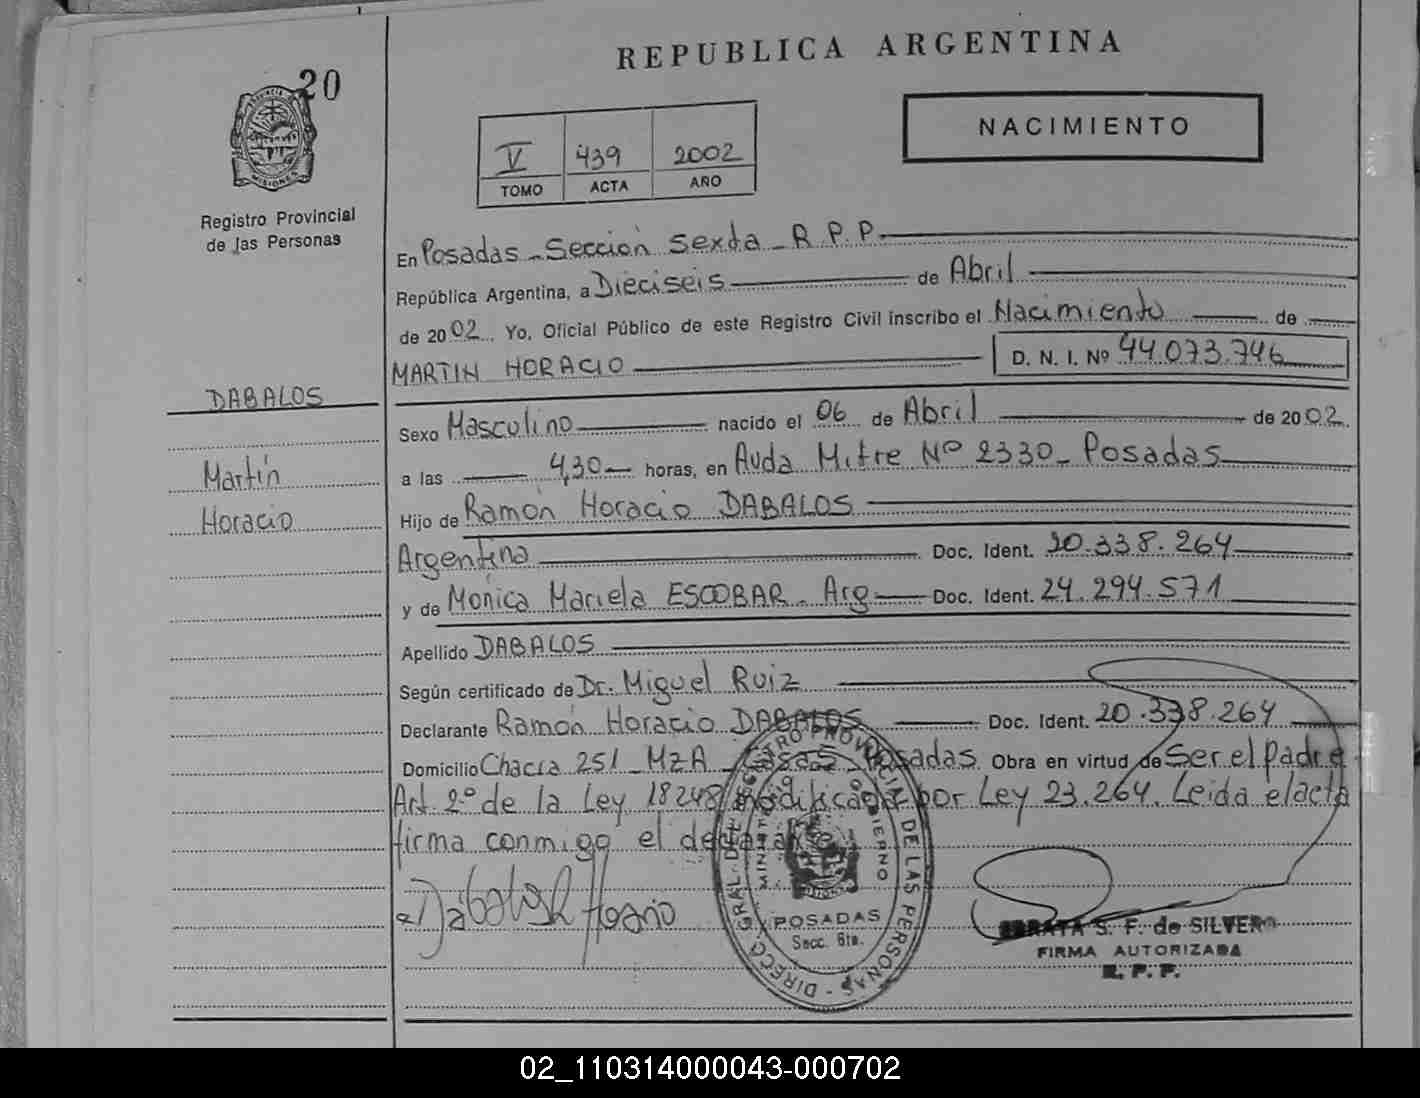 REPUBLICA ARGENTINA
20
PROVINCIA DE MISIONES
Registro Provincial
de las Personas
V 439 2002
TOMO ACTA AÑO
NACIMIENTO
En Posadas - Sección Sexta - R.P.P.
República Argentina, a Dieciseis de Abril
de 2002. Yo, Oficial Público de este Registro Civil inscribo el Nacimiento de
MARTIN HORACIO D. N. I. Nº 44.073.746
DABALOS
Martín
Horacio
Sexo Masculino nacido el 06 de Abril de 2002.
a las 4,30 horas, en Avda Mitre Nº 2330 - Posadas
Hijo de Ramón Horacio DABALOS
Argentina Doc. Ident. 20.338.264
y de Mónica Mariela ESCOBAR - Arg Doc. Ident. 24.294.571
Apellido DABALOS
Según certificado de Dr. Miguel Ruiz
Declarante Ramón Horacio DABALOS Doc. Ident. 20.338.264
Domicilio Chacra 251 - MzA - Casa 5 - Posadas Obra en virtud de Ser el Padre
Art. 2º de la Ley 18248 modificada por Ley 23.264. Leida el acta
firma conmigo el declarante
Horacio
DIRECC. GRAL. DEL REGISTRO PROVINCIAL DE LAS PERSONAS
MINISTERIO GOBIERNO
POSADAS
Secc. 6ta.
S. F. de SILVERO
FIRMA AUTORIZADA
R. P. P.
02_110314000043-000702